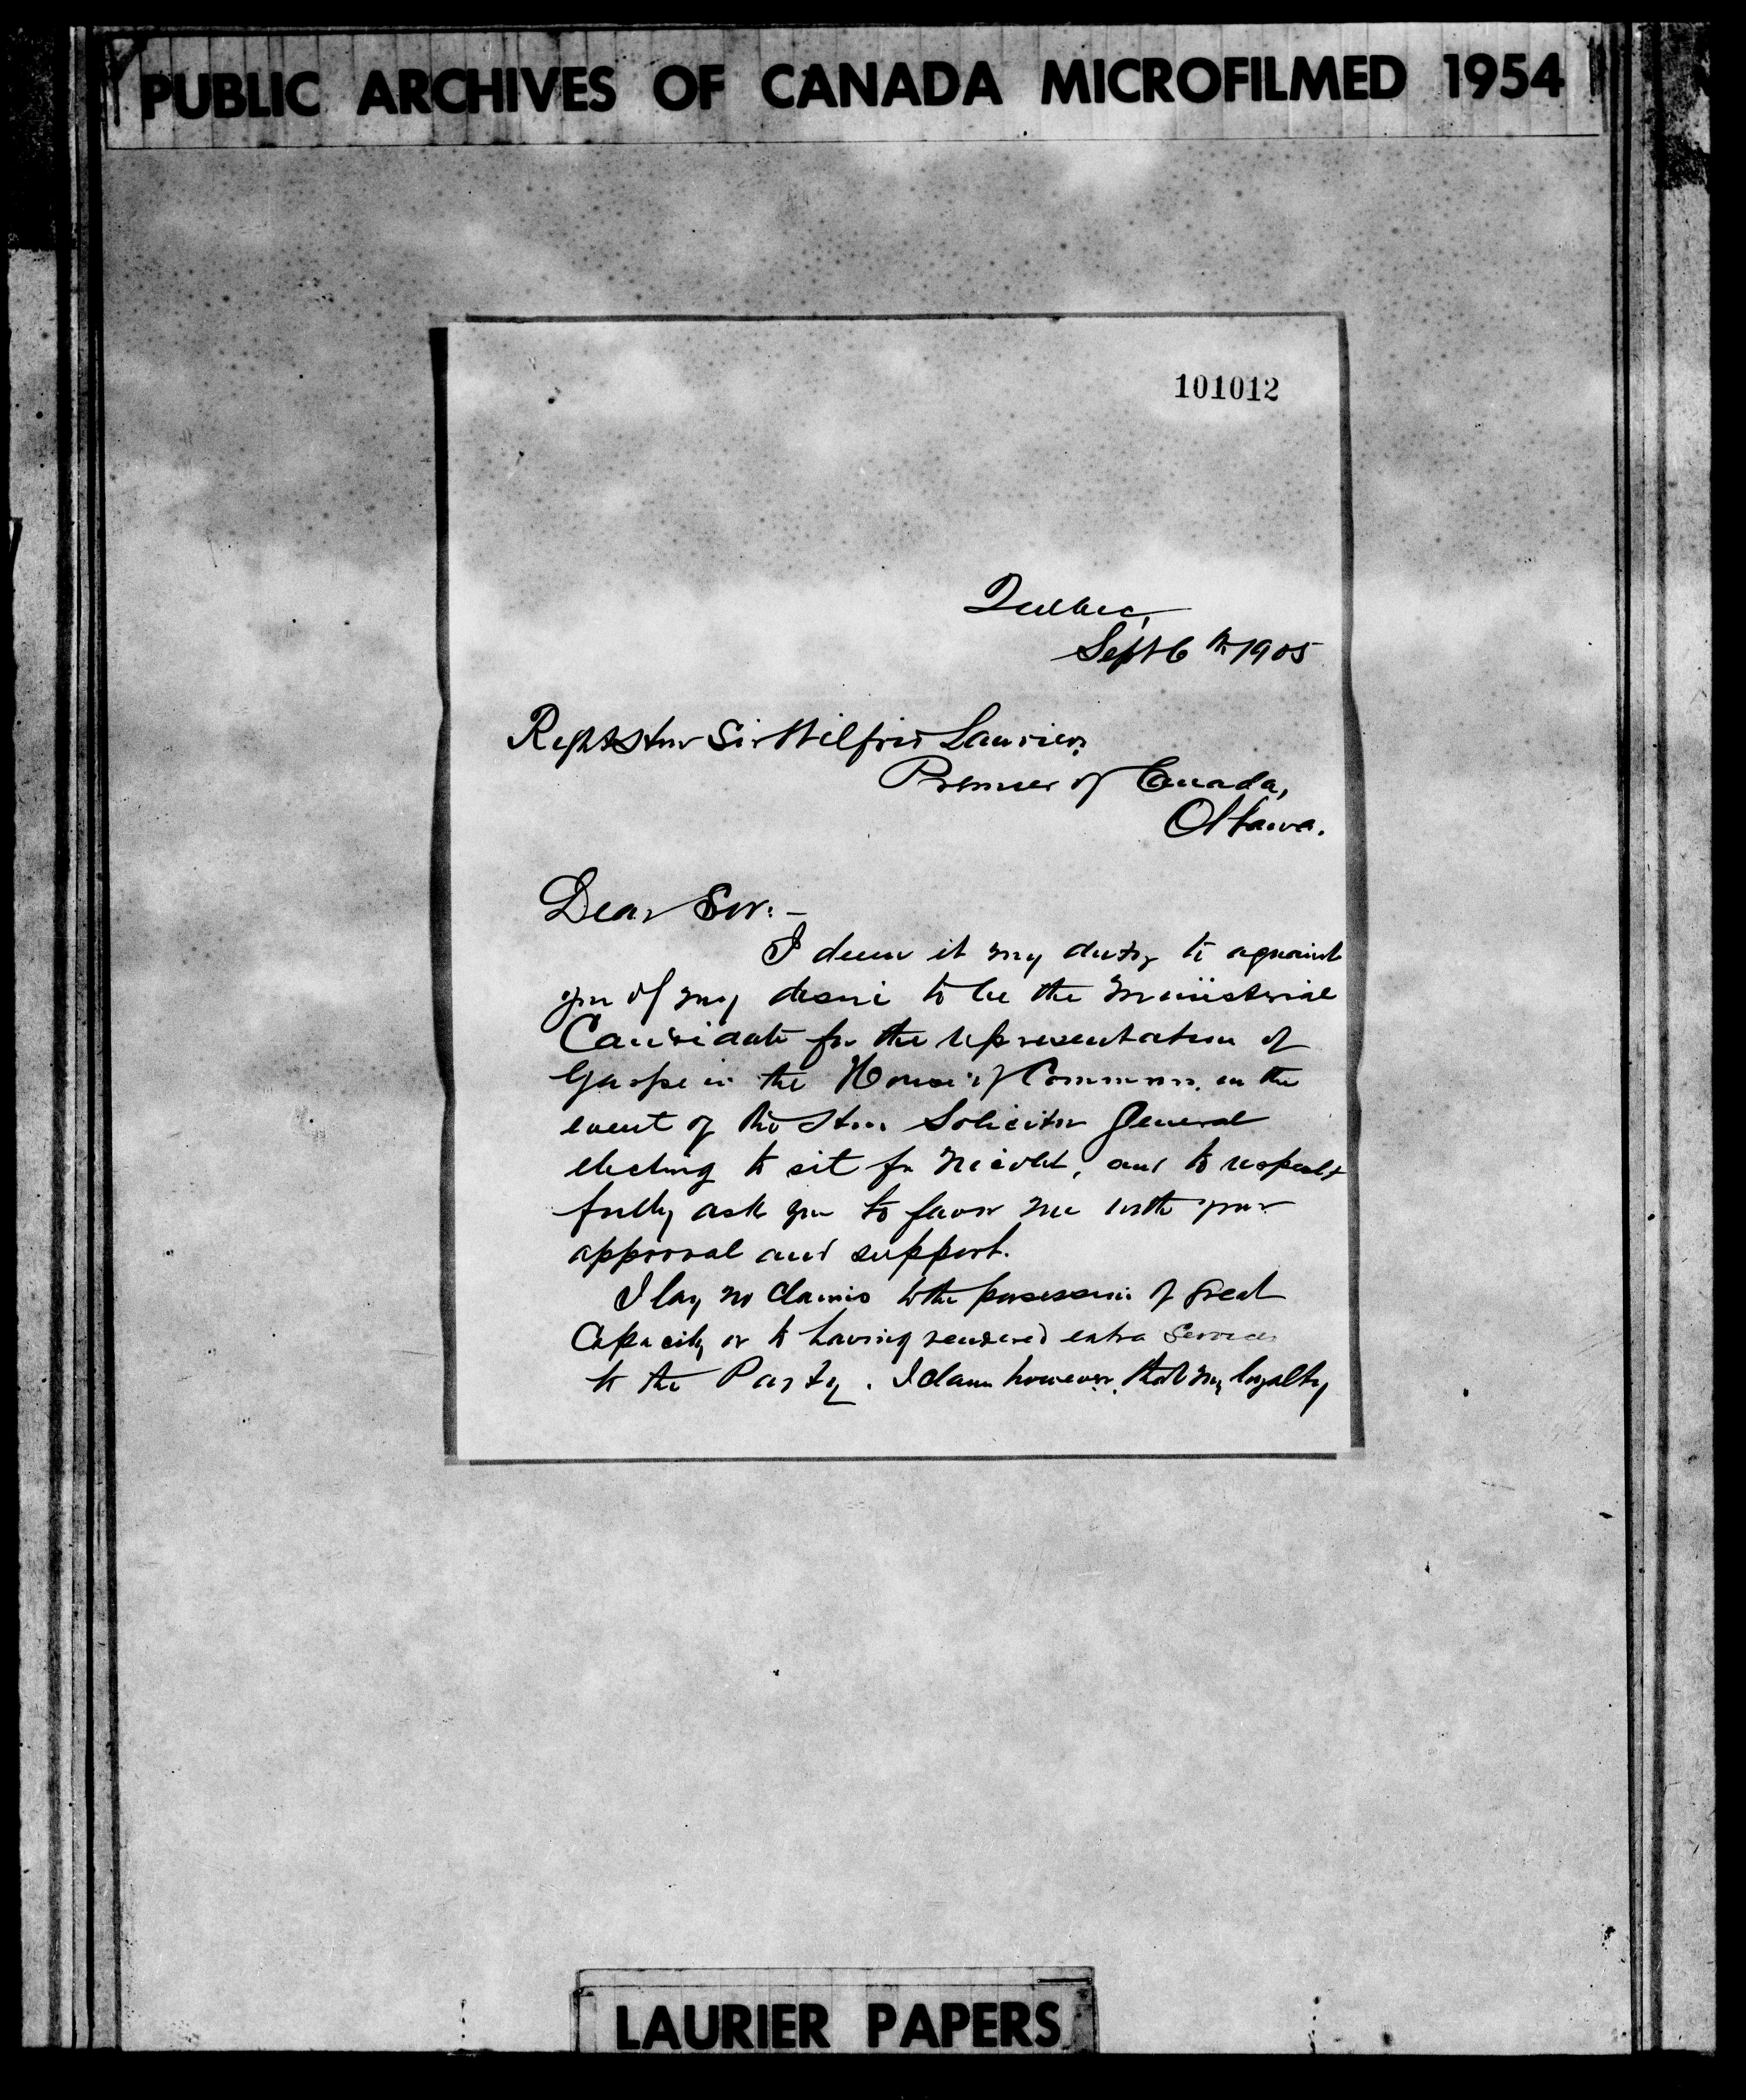 PUBLIC ARCHIVES OF CANADA MICROFILMED 1954
101012
Quebec,
Sept 6th 1905
Right Hon Sir Wilfrid Laurier,
Premier of Canada,
Ottawa.
Dear Sir:-
I deem it my duty to aquaint
you of my desire to be the ministerial
Candidate for the representation of
Gaspe in the House of Commons, in the
event of the Hon Solicitor General
electing to sit for Nicolet, and to respect-
fully ask you to favor me with your
approval and support.
I lay no claims to the possession of great
Capacity or to having rendered extra services
to the Party. I claim however, that my loyalty
LAURIER PAPERS